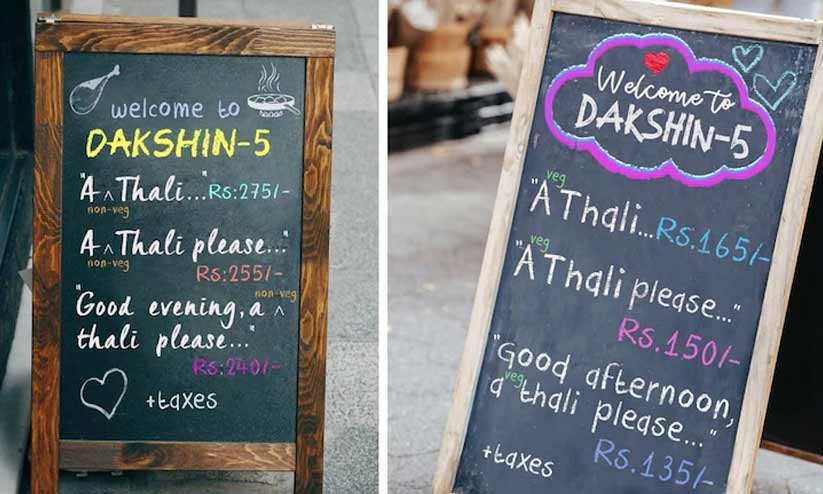 welcome to
DAKSHIN-5
"A ^ Thali..." Rs:275/-
non-veg
"A ^ Thali please..."
non-veg
Rs:255/-
non-veg
"Good evening, a ^
thali please..."
Rs:240/-
+taxes
Welcome to
DAKSHIN-5
veg
"A Thali... Rs.165/-
veg
"A Thali please..."
Rs.150/-
"Good afternoon,
veg
a thali please..."
Rs.135/-
+taxes